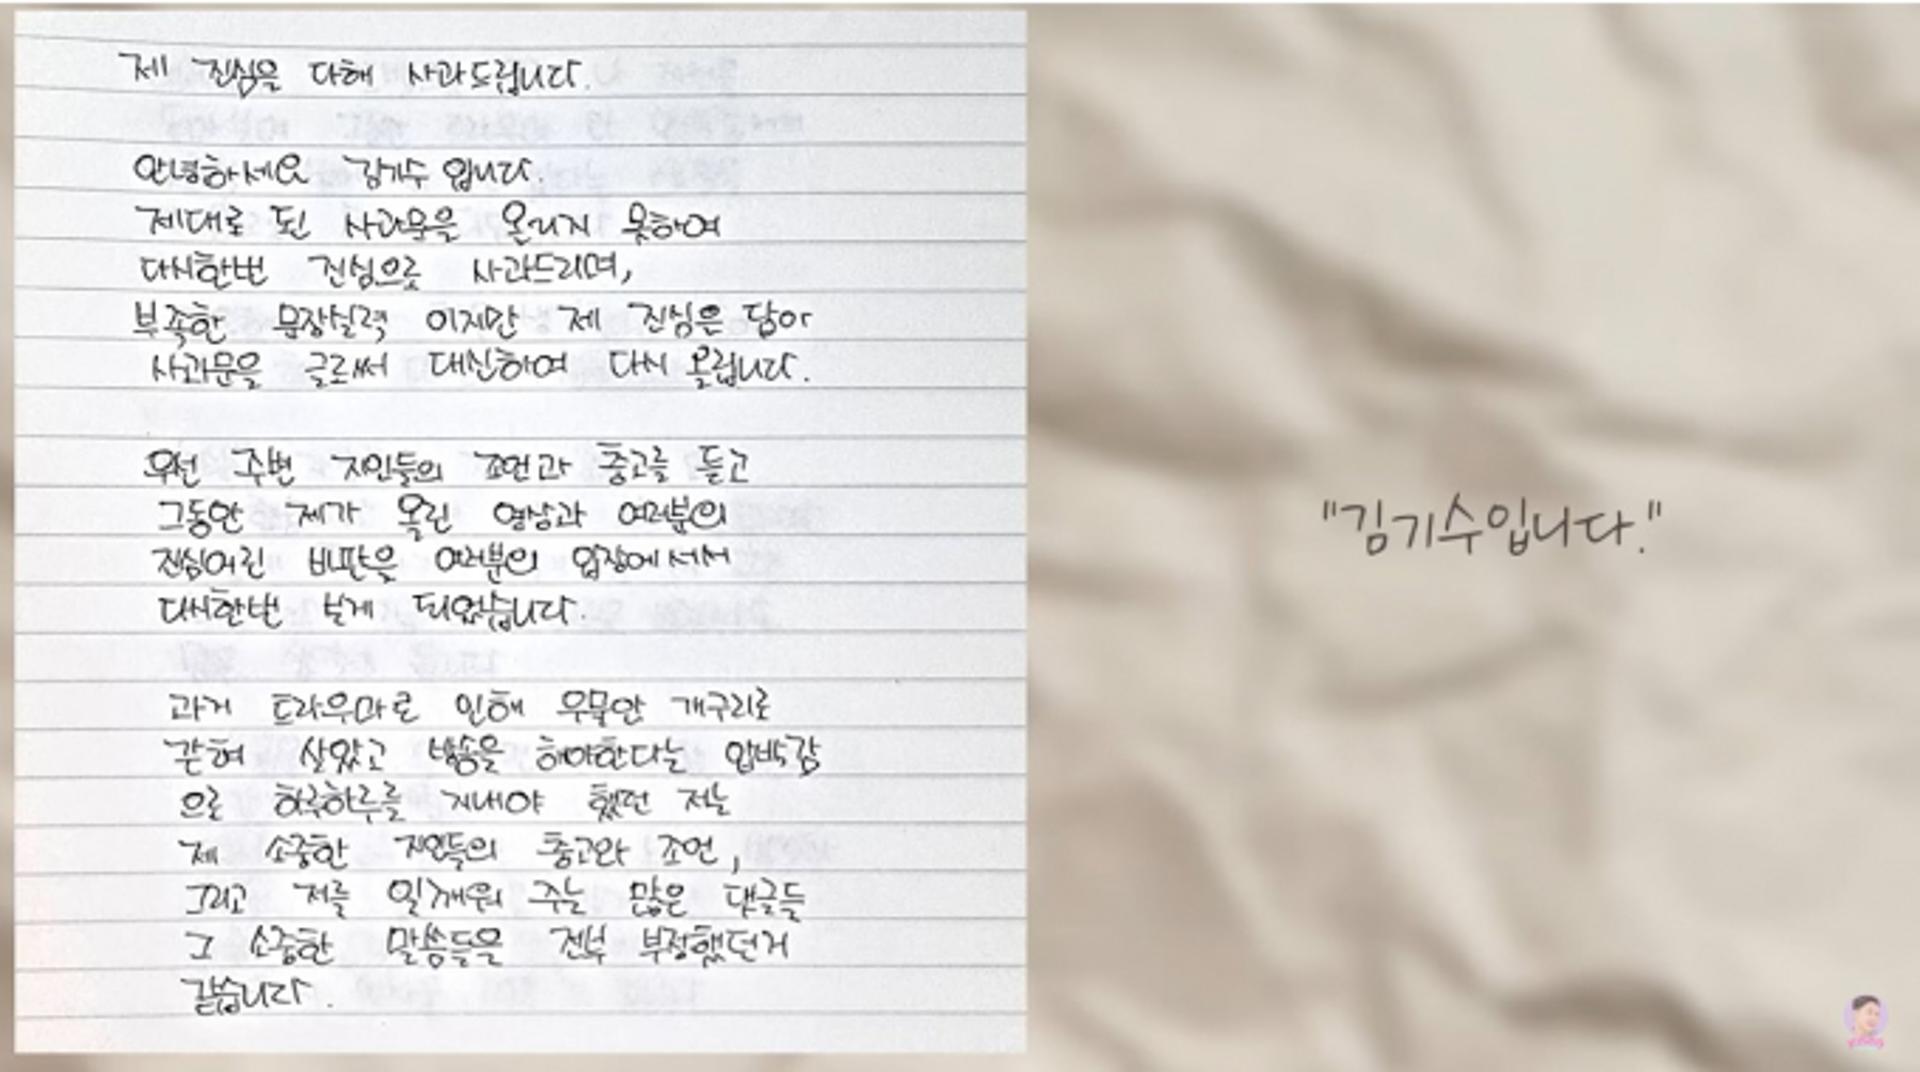 제 진심을 다해 사과드립니다.
안녕하세요 김기수 입니다.
제대로 된 사과문을 올리지 못하여
다시한번 진심으로 사과드리며,
부족한 문장실력 이지만 제 진심은 담아
사과문을 글로써 대신하여 다시 올립니다.
우선 주변 지인들의 조언과 충고를 듣고
그동안 제가 올린 영상과 여러분의
진심어린 비판을 여러분의 입장에서서
다시한번 보게 되었습니다.
과거 트라우마로 인해 우물안 개구리로
갇혀 살았고 방송을 해야한다는 압박감
으로 하루하루를 지내야 했던 저는
제 소중한 지인들의 충고와 조언,
그리고 저를 일깨워 주는 많은 댓글들
그 소중한 말씀들을 전부 부정했던거
같습니다.
"김기수입니다."